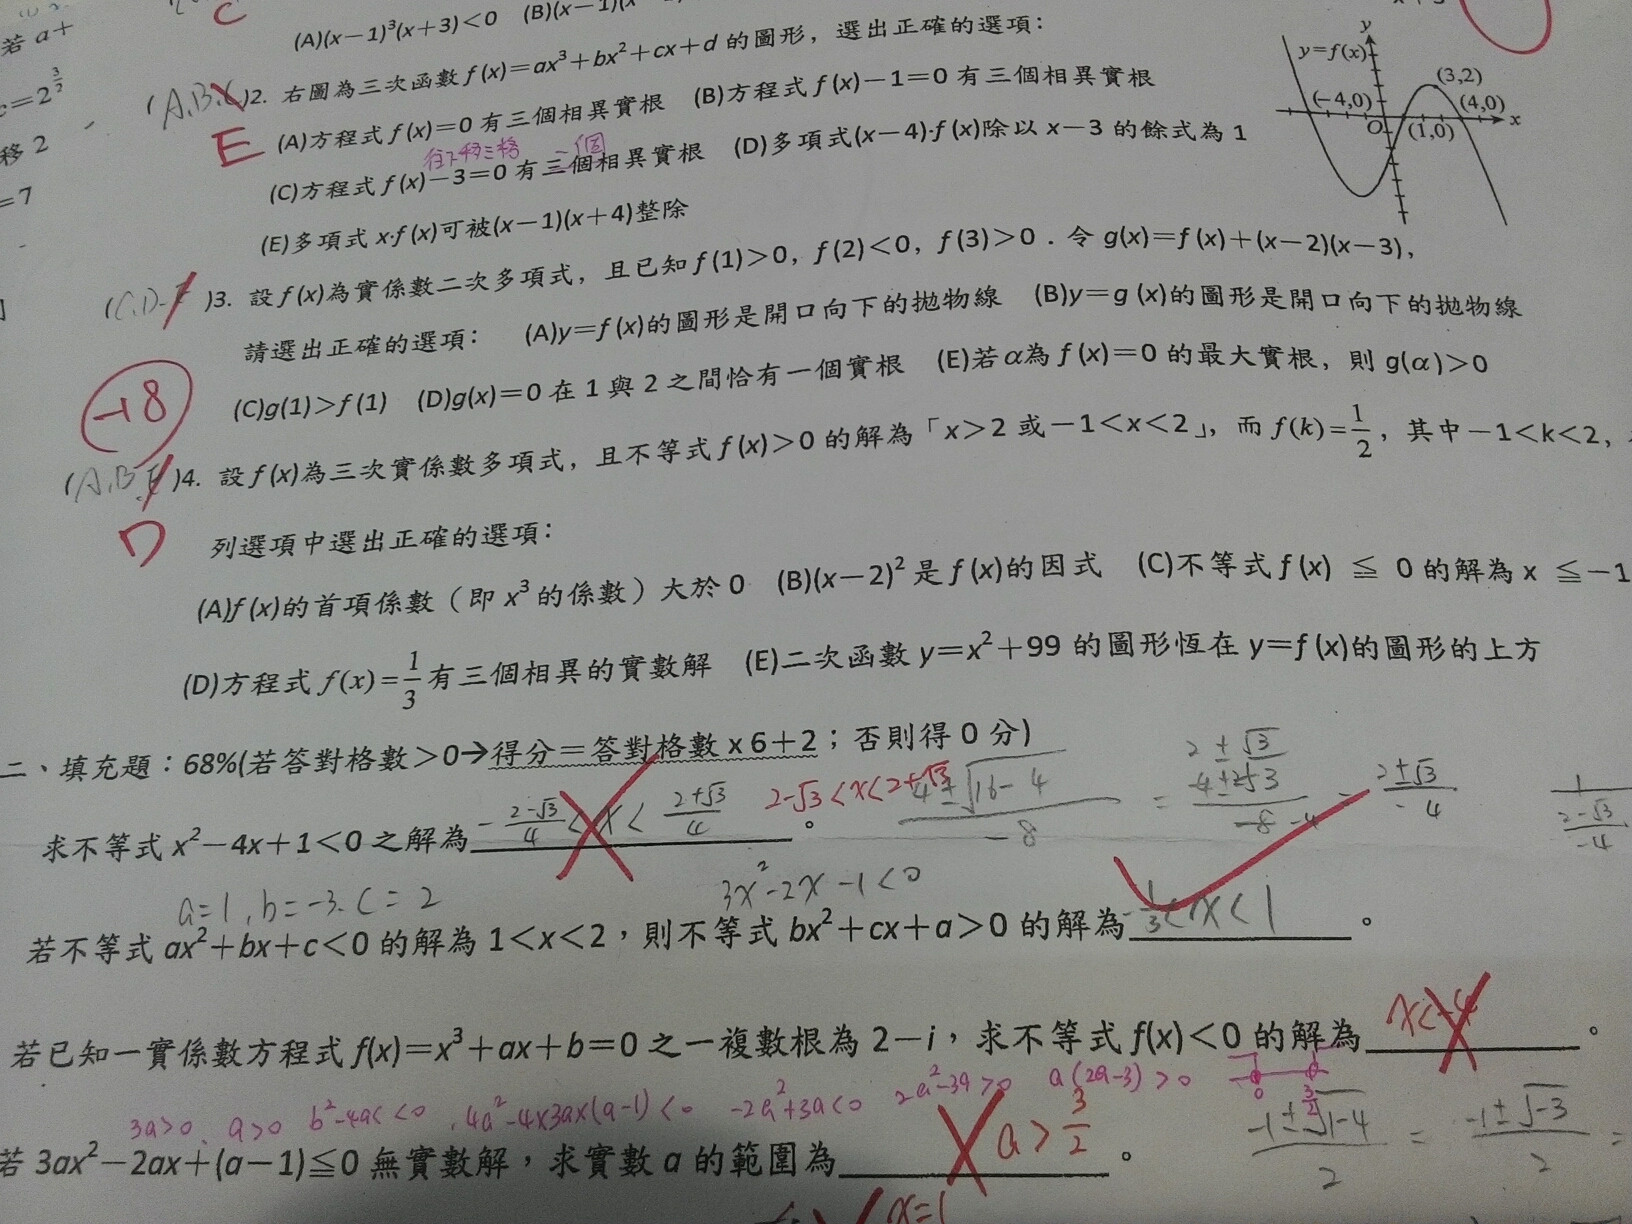 若 a+
C
(A)(x−1)³(x+3)<0 (B)(x−1)(x
c=2^{3/2}
(A,B,C)2. 右圖為三次函數 f(x)=ax³+bx²+cx+d 的圖形，選出正確的選項：
y
y=f(x)
(3,2)
(−4,0)
(4,0)
x
O
(1,0)
移 2
E
(A)方程式 f(x)=0 有三個相異實根 (B)方程式 f(x)−1=0 有三個相異實根
往下移三格 一個
=7
(C)方程式 f(x)−3=0 有三個相異實根 (D)多項式(x−4)·f(x)除以 x−3 的餘式為 1
(E)多項式 x·f(x)可被(x−1)(x+4)整除
(C,D,E)3. 設 f(x)為實係數二次多項式，且已知 f(1)>0，f(2)<0，f(3)>0．令 g(x)=f(x)+(x−2)(x−3)，
請選出正確的選項： (A)y=f(x)的圖形是開口向下的拋物線 (B)y=g (x)的圖形是開口向下的拋物線
−18
(C)g(1)>f(1) (D)g(x)=0 在 1 與 2 之間恰有一個實根 (E)若 α為 f(x)=0 的最大實根，則 g(α)>0
(A,B,E)4. 設 f(x)為三次實係數多項式，且不等式 f(x)>0 的解為「x>2 或−1<x<2」，而 f(k)=1/2，其中−1<k<2，
D
列選項中選出正確的選項：
(A)f(x)的首項係數（即 x³ 的係數）大於 0 (B)(x−2)² 是 f(x)的因式 (C)不等式 f(x) ≦ 0 的解為 x ≦−1
(D)方程式 f(x)=1/3 有三個相異的實數解 (E)二次函數 y=x²+99 的圖形恆在 y=f(x)的圖形的上方
二、填充題：68%(若答對格數>0→得分=答對格數 x 6+2；否則得 0 分)
2−√3<x<2+√3
4±√16−4 / −8 = 2±√3
−4±2√3 / −8 −4
2±√3 / −4
1 / (2−√3 / −4)
求不等式 x²−4x+1<0 之解為 −(2−√3)/4 < x < (2+√3)/4 。
a=1, b=−3. c=2
3x²−2x−1<0
若不等式 ax²+bx+c<0 的解為 1<x<2，則不等式 bx²+cx+a>0 的解為 −1/3<x<1 。
若已知一實係數方程式 f(x)=x³+ax+b=0 之一複數根為 2−i，求不等式 f(x)<0 的解為 x<−4 。
3a>0、a>0 b²−4ac<0 4a²−4×3a×(a−1)<0 −2a²+3a<0 2a²−3a>0 a(2a−3)>0
0 3/2
−1±√1−4 / 2 = −1±√−3 / 2 =
若 3ax²−2ax+(a−1)≦0 無實數解，求實數 a 的範圍為 a>3/2 。
x=1